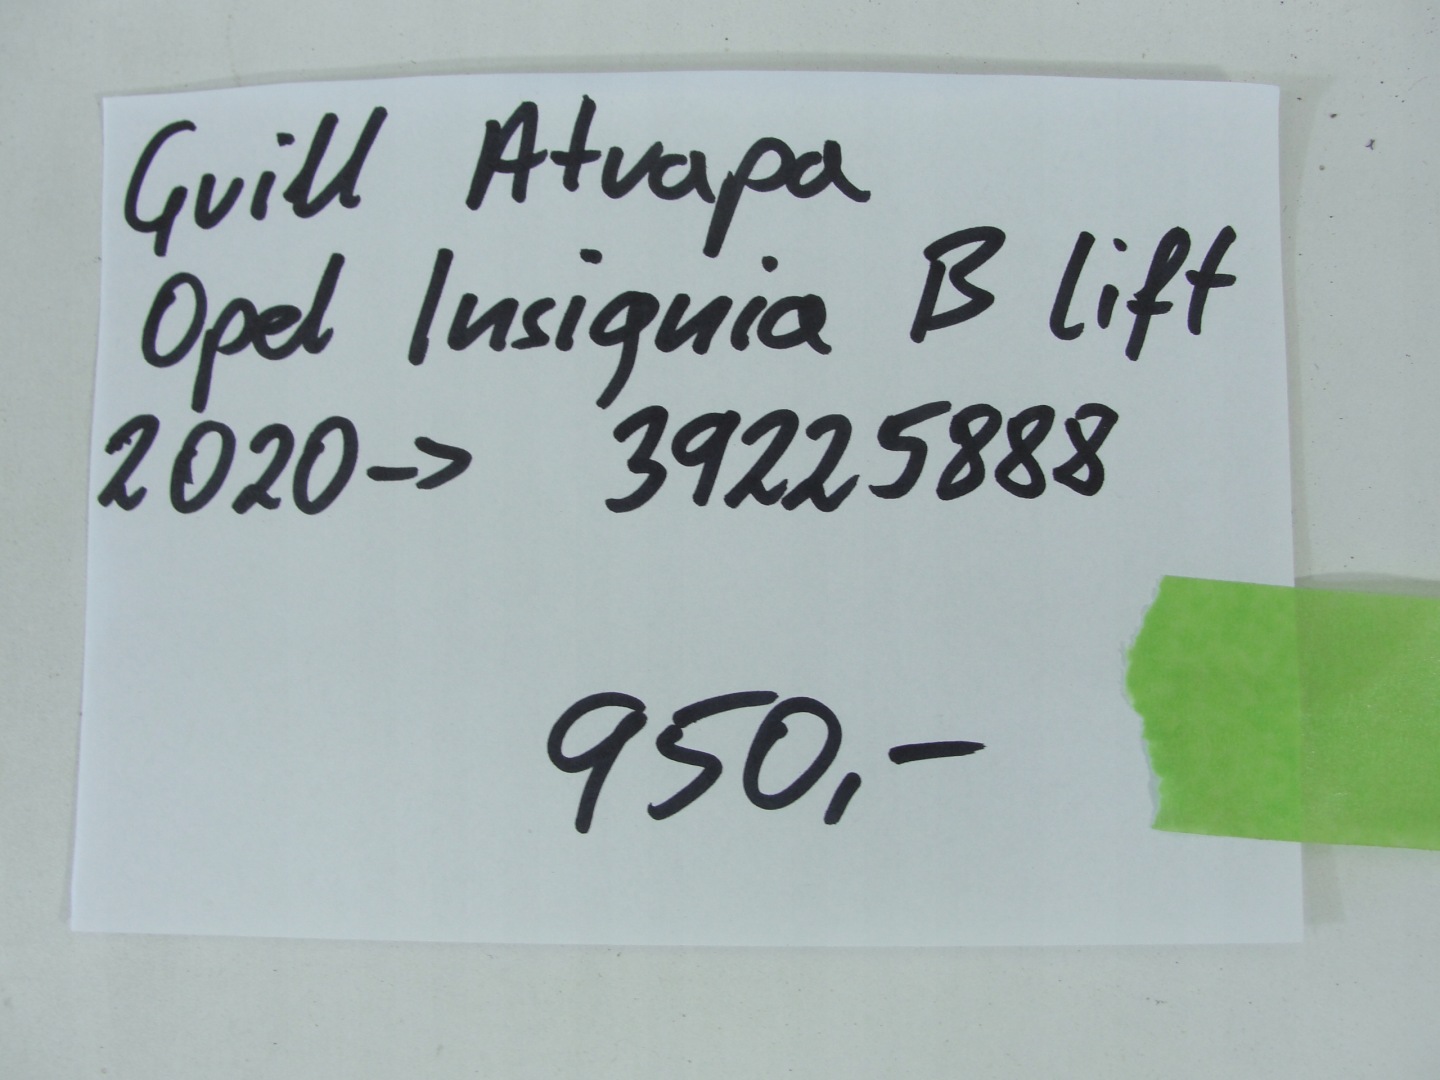 Grill Atrapa
Opel Insignia B lift
2020-> 39225888
950,-